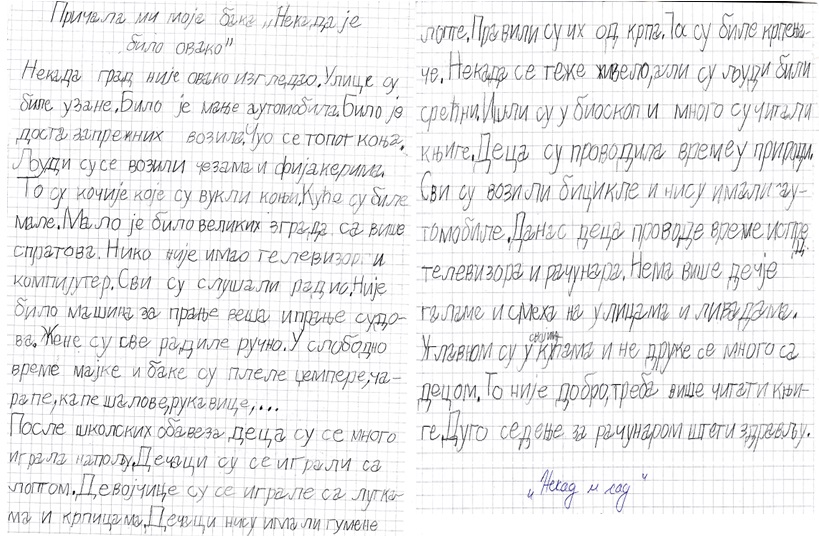 Причала ми моја бака „Некада је
било овако"
Некада град није овако изгледао. Улице су
биле узане. Било је мање аутомобила. Било је
доста запрежних возила. Чуо се топот коња.
Људи су се возили чезама и фијакерима.
То су кочије које су вукли коњи. Куће су биле
мале. Мало је било великих зграда са више
спратова. Нико није имао телевизор и
компијутер. Сви су слушали радио. Није
било машина за прање веша и прање судо-
ва. Жене су све радиле ручно. У слободно
време мајке и баке су плеле џемпере, ча-
рапе, капе шалове, рукавице,...
После школских обавеза деца су се много
играла напољу. Дечаци су се играли са
лоптом. Девојчице су се играле са лутка-
ма и крпицама. Дечаци нису имали гумене
лопте. Правили су их од крпа. То су биле крпења-
че. Некада се теже живело, али су људи били
срећни. Ишли су у биоскоп и много су читали
књиге. Деца су проводила време у природи.
Сви су возили бицикле и нису имали ау-
томобиле. Данас деца проводе време испред
телевизора и рачунара. Нема више дечје
галаме и смеха на улицама и ливадама.
Углавном су у својим кућама и не друже се много са
децом. То није добро, треба више читати књи-
ге. Дуго седење за рачунаром штети здрављу.
„Некад и сад"